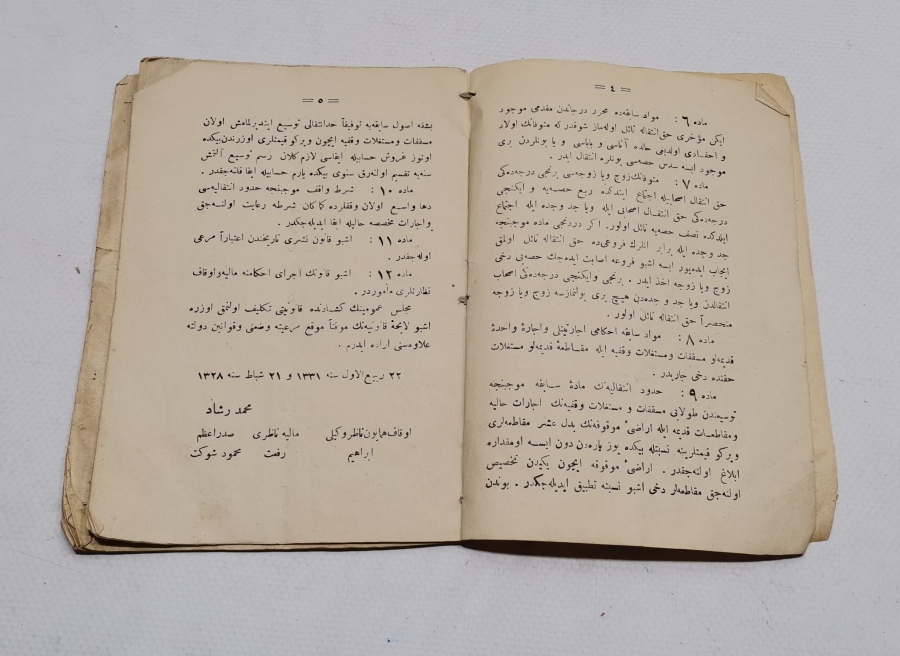 = ٤ =
ماده ٦ : مواد سابقه‌ده محرر درجاتدن مقدمی موجود
ایکن مؤخری حق انتقاله نائل اوله‌ماز شوقدر که متوفانك اولاد
و احفادی اولدیغی حالده آناسی و باباسی و یا بونلردن بری
موجود ایسه سدس حصه‌سی بونلره انتقال ایدر .
ماده ٧ : متوفانك زوج ویا زوجه‌سی برنجی درجه‌ده‌کی
حق انتقال اصحابیله اجتماع ایتدکده ربع حصه‌یه و ایکنجی
درجه‌ده‌کی حق انتقال اصحابی ایله ویا جد وجده ایله اجتماع
ایتدکده نصف حصه‌یه نائل اولور . اکر دردنجی ماده موجبنجه
جد وجده ایله برابر انلرك فروعی‌ده حق انتقاله نائل اولمق
ایجاب ایدەیور ایسه اشبو فروعه اصابت ایده‌جك حصه‌یی دخی
زوج ویا زوجه اخذ ایدر . برنجی وایکنجی درجه‌ده‌کی اصحاب
انتقالدن ویا جد و جده‌دن هیچ بری بولنمازسه زوج ویا زوجه
منحصراً حق انتقاله نائل اولور .
ماده ٨ : مواد سابقه احکامی اجارتینلی واجارهٔ واحدهٔ
قدیمه‌لو مسقفات ومستغلات وقفیه ایله مقاطعهٔ قدیمه‌لو مستغلات
حقنده دخی جاریدر .
ماده ٩ : حدود انتقالیه‌نك مادهٔ سابقه موجبنجه
توسیعندن طولایی مسقفات و مستغلات وقفیه‌نك اجارات حالیه
ومقاطعات قدیمه ایله اراضیٔ موقوفه‌نك بدل عشر مقاطعه‌لری
ویرکو قیمتلرینه نسبتله بیکده یوز پاره‌دن دون ایسه اومقداره
ابلاغ اولنه‌جقدر . اراضیٔ موقوفه ایچون یکیدن تخصیص
اولنه‌جق مقاطعه‌لر دخی اشبو نسبته تطبیق ایدیله‌جکدر . بوندن
= ٥ =
بشقه اصول سابقه‌یه توفیقاً حد انتقالی توسیع ایتدیرلمامش اولان
مسقفات ومستغلات وقفیه ایچون ویرکو قیمتلری اوزرندن بیکده
اوتوز غروش حسابیله ایفاسی لازم کلان رسم توسیع آلتمش
سنه‌یه تقسیم اولنه‌رق سنوی بیکده یارم حسابیله ابقا قلنه‌جقدر .
ماده ١٠ : شرط واقف موجبنجه حدود انتقالیه‌سی
دها واسع اولان وقفلرده کماکان شرطه رعایت اولنه‌جق
واجارات مخصصه حالیله ابقا ایدیله‌جکدر .
ماده ١١ : اشبو قانون نشری تاریخندن اعتباراً مرعی
اوله‌جقدر .
ماده ١٢ : اشبو قانونك اجرای احکامنه مالیه واوقاف
نظارتلری مأموردر .
مجلس عمومینك کشادنده قانونیتی تکلیف اولنمق اوزره
اشبو لایحهٔ قانونیه‌نك موقتاً موقع مرعیته وضعنی وقوانین دولته
علاوه‌سنی اراده ایدرم .
٢٢ ربیع الاول سنه ١٣٣١ و ٢١ شباط سنه ١٣٢٨
محمد رشاد
اوقاف همایون ناظر وکیلی مالیه ناظری صدراعظم
ابراهیم رفعت محمود شوکت